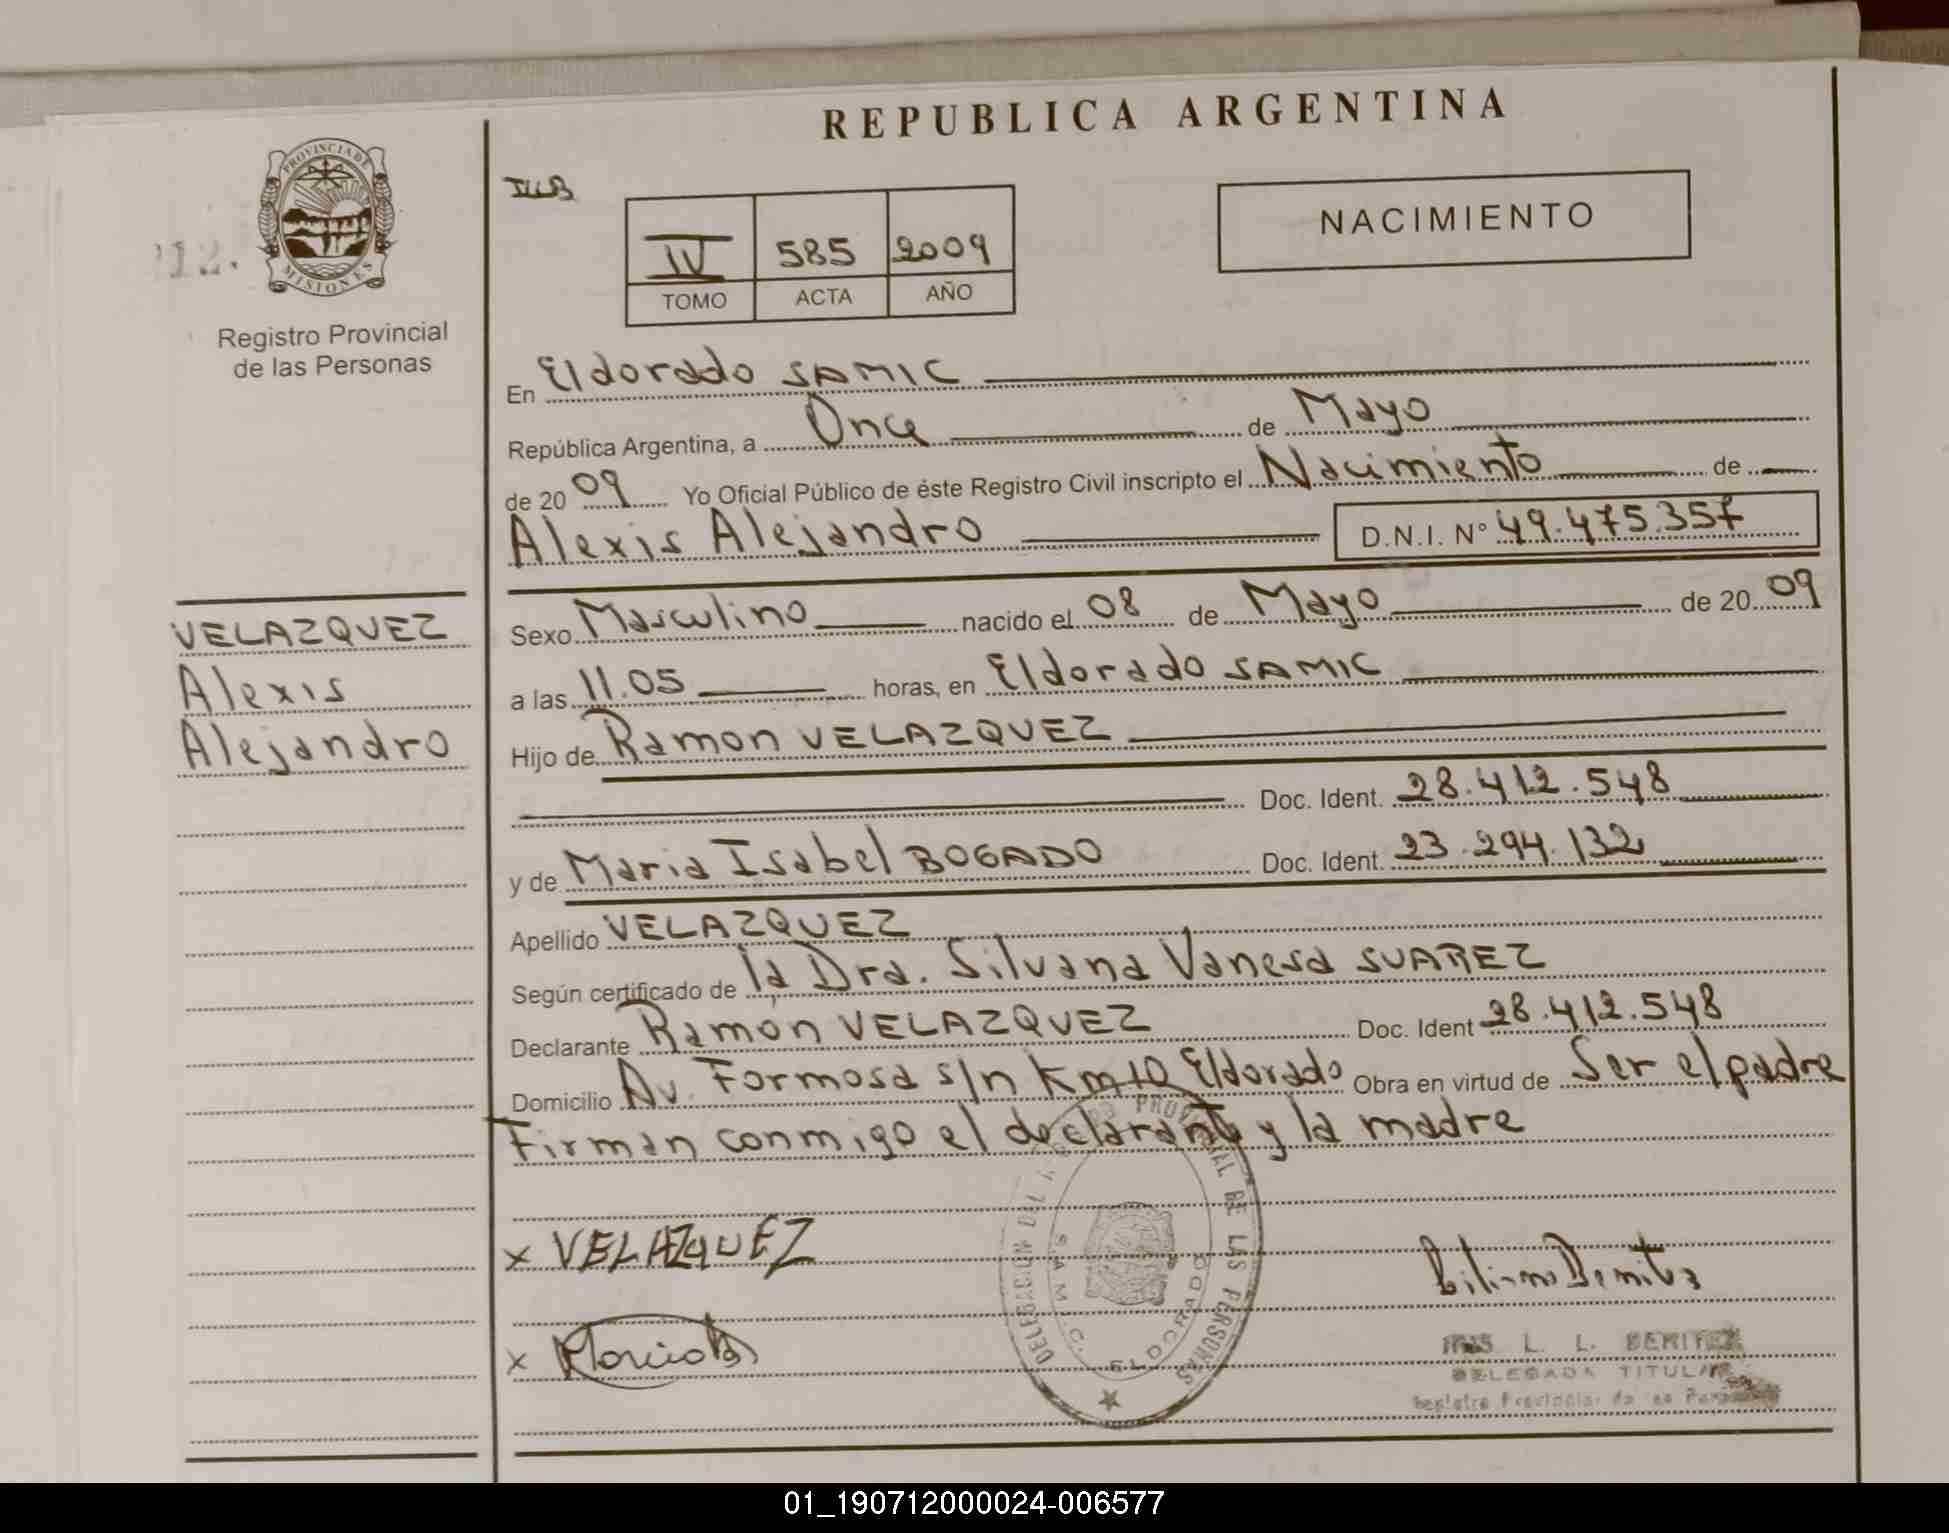 REPUBLICA ARGENTINA
PROVINCIA DE
MISIONES
Registro Provincial
de las Personas
ILLB
NACIMIENTO
IV 585 2009
TOMO ACTA AÑO
En Eldorado SAMIC
República Argentina, a Once de Mayo
de 20 09 Yo Oficial Público de éste Registro Civil inscripto el Nacimiento de
Alexis Alejandro D.N.I. N° 49.475.357
VELAZQUEZ
Alexis
Alejandro
Sexo Masculino nacido el 08 de Mayo de 20 09
a las 11.05 horas, en Eldorado SAMIC
Hijo de Ramon VELAZQUEZ
Doc. Ident. 28.412.548
y de Maria Isabel BOGADO Doc. Ident. 23.294.132
Apellido VELAZQUEZ
Según certificado de la Dra. Silvana Vanesa SUAREZ
Declarante Ramón VELAZQUEZ Doc. Ident 28.412.548
Domicilio Av. Formosa s/n Km 10 Eldorado Obra en virtud de Ser el padre
Firman conmigo el declarante y la madre
x VELAZQUEZ
x
DELEGACION DEL PROVINCIAL DE LAS PERSONAS
S.A.M.I.C. ELDORADO
L. L. BENITEZ
DELEGADA TITULAR
Registro Provincial de las
01_190712000024-006577